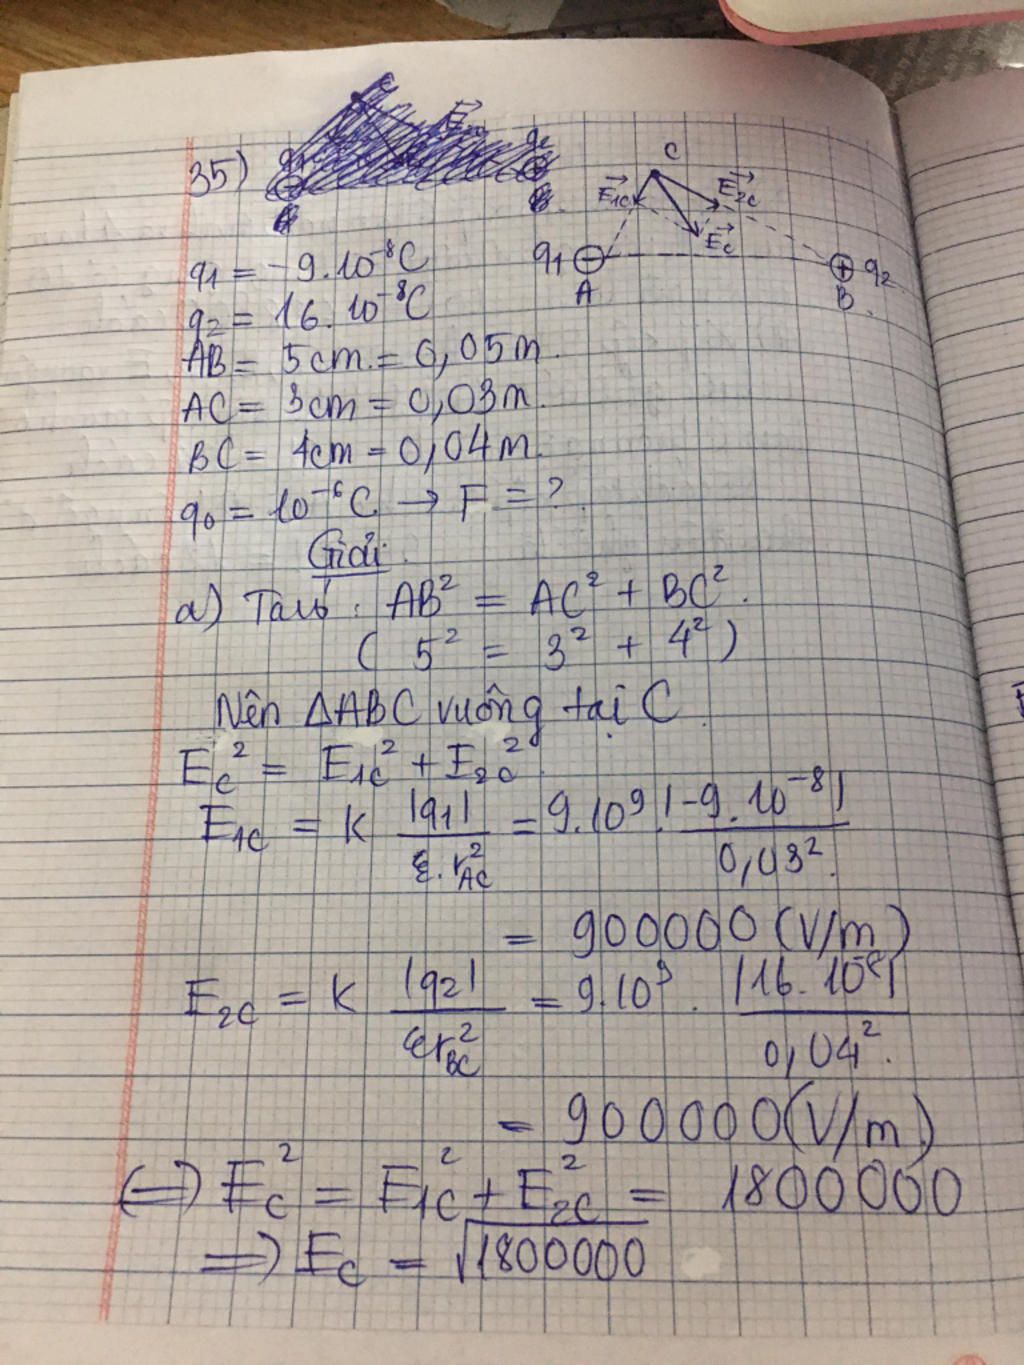 35)
C
E1C
E2C
EC
q1
A
q2
B
q1 = -9.10⁻⁸C
q2 = 16.10⁻⁸C
AB = 5cm = 0,05m.
AC = 3cm = 0,03m.
BC = 4cm = 0,04m.
q0 = 10⁻⁶C → F = ?
Giải.
a) Ta có: AB² = AC² + BC².
( 5² = 3² + 4² )
Nên ΔABC vuông tại C.
EC² = E1C² + E2C².
E1C = k |q1| / ε.r²AC = 9.10⁹. |-9.10⁻⁸| / 0,03².
= 900000 (V/m)
E2C = k |q2| / εr²BC = 9.10⁹. |16.10⁻⁸| / 0,04².
= 900000 (V/m)
(=) EC² = E1C² + E2C² = 1800000
=) EC = √1800000